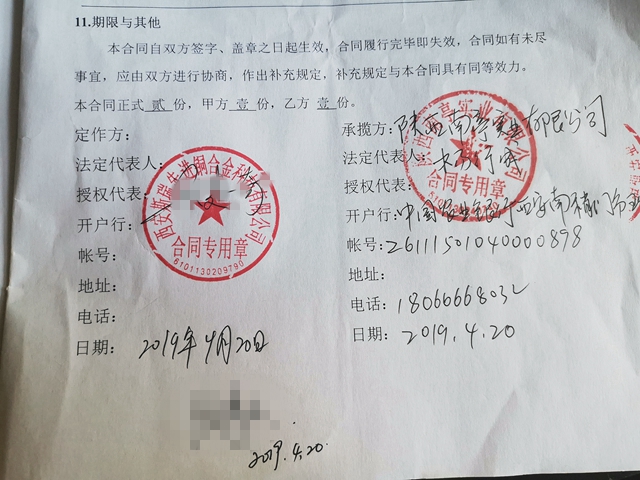 11.期限与其他
本合同自双方签字、盖章之日起生效，合同履行完毕即失效，合同如有未尽
事宜，应由双方进行协商，作出补充规定，补充规定与本合同具有同等效力。
本合同正式 贰 份，甲方 壹 份，乙方 壹 份。
定作方：
法定代表人：
授权代表：
开户行：
帐号：
地址：
电话：
日期： 2019年4月20日
合同专用章
6101130209790
承揽方：陕西南亭实业有限公司
法定代表人：
授权代表：
开户行：中国
帐号：2611150104000898
地址：
电话：1806666803
日期：2019.4.20
合同专用章
2019.4.20